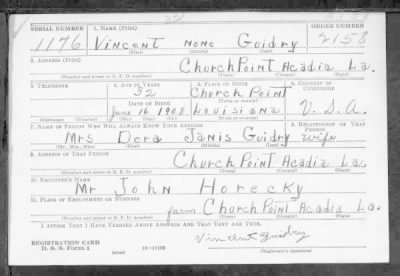 SERIAL NUMBER 1. NAME (Print) ORDER NUMBER
1176 Vincent none Guidry 2158
(First) (Middle) (Last)
2. ADDRESS (Print)
Church Point Acadia La.
(Number and street or R. F. D. number) (Town) (County) (State)
3. TELEPHONE 4. AGE IN YEARS 5. PLACE OF BIRTH 6. COUNTRY OF CITIZENSHIP
32 Church Point
DATE OF BIRTH (Town or county)
June 16 1908 Louisiana U. S. A.
(Exchange) (Number) (Mo.) (Day) (Yr.) (State or country)
7. NAME OF PERSON WHO WILL ALWAYS KNOW YOUR ADDRESS 8. RELATIONSHIP OF THAT PERSON
Mrs Dora Janis Guidry wife
(Mr., Mrs., Miss) (First) (Middle) (Last)
9. ADDRESS OF THAT PERSON
Church Point Acadia La.
(Number and street or R. F. D. number) (Town) (County) (State)
10. EMPLOYER'S NAME
Mr John Horecky
11. PLACE OF EMPLOYMENT OR BUSINESS
farm Church Point Acadia La.
(Number and street or R. F. D. number) (Town) (County) (State)
I AFFIRM THAT I HAVE VERIFIED ABOVE ANSWERS AND THAT THEY ARE TRUE.
Vincent Guidry
REGISTRATION CARD
D. S. S. Form 1 (over) (Registrant's signature)